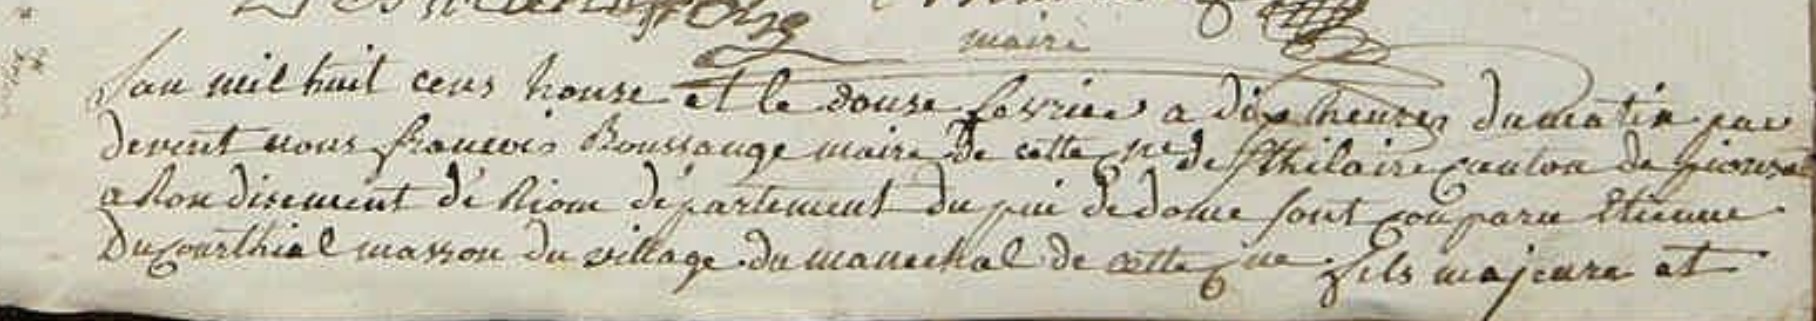 maire
Lan mil huit cens honse et le douse fevrier a dix heures du matin par
devent nous francois Boussange maire de cette cne de St hilaire canton de pionsat
a Rondisement de Riom département du pui de dome sont comparu Etienne
Ducourthial masson du village du marechal de cette cne fils majeure et